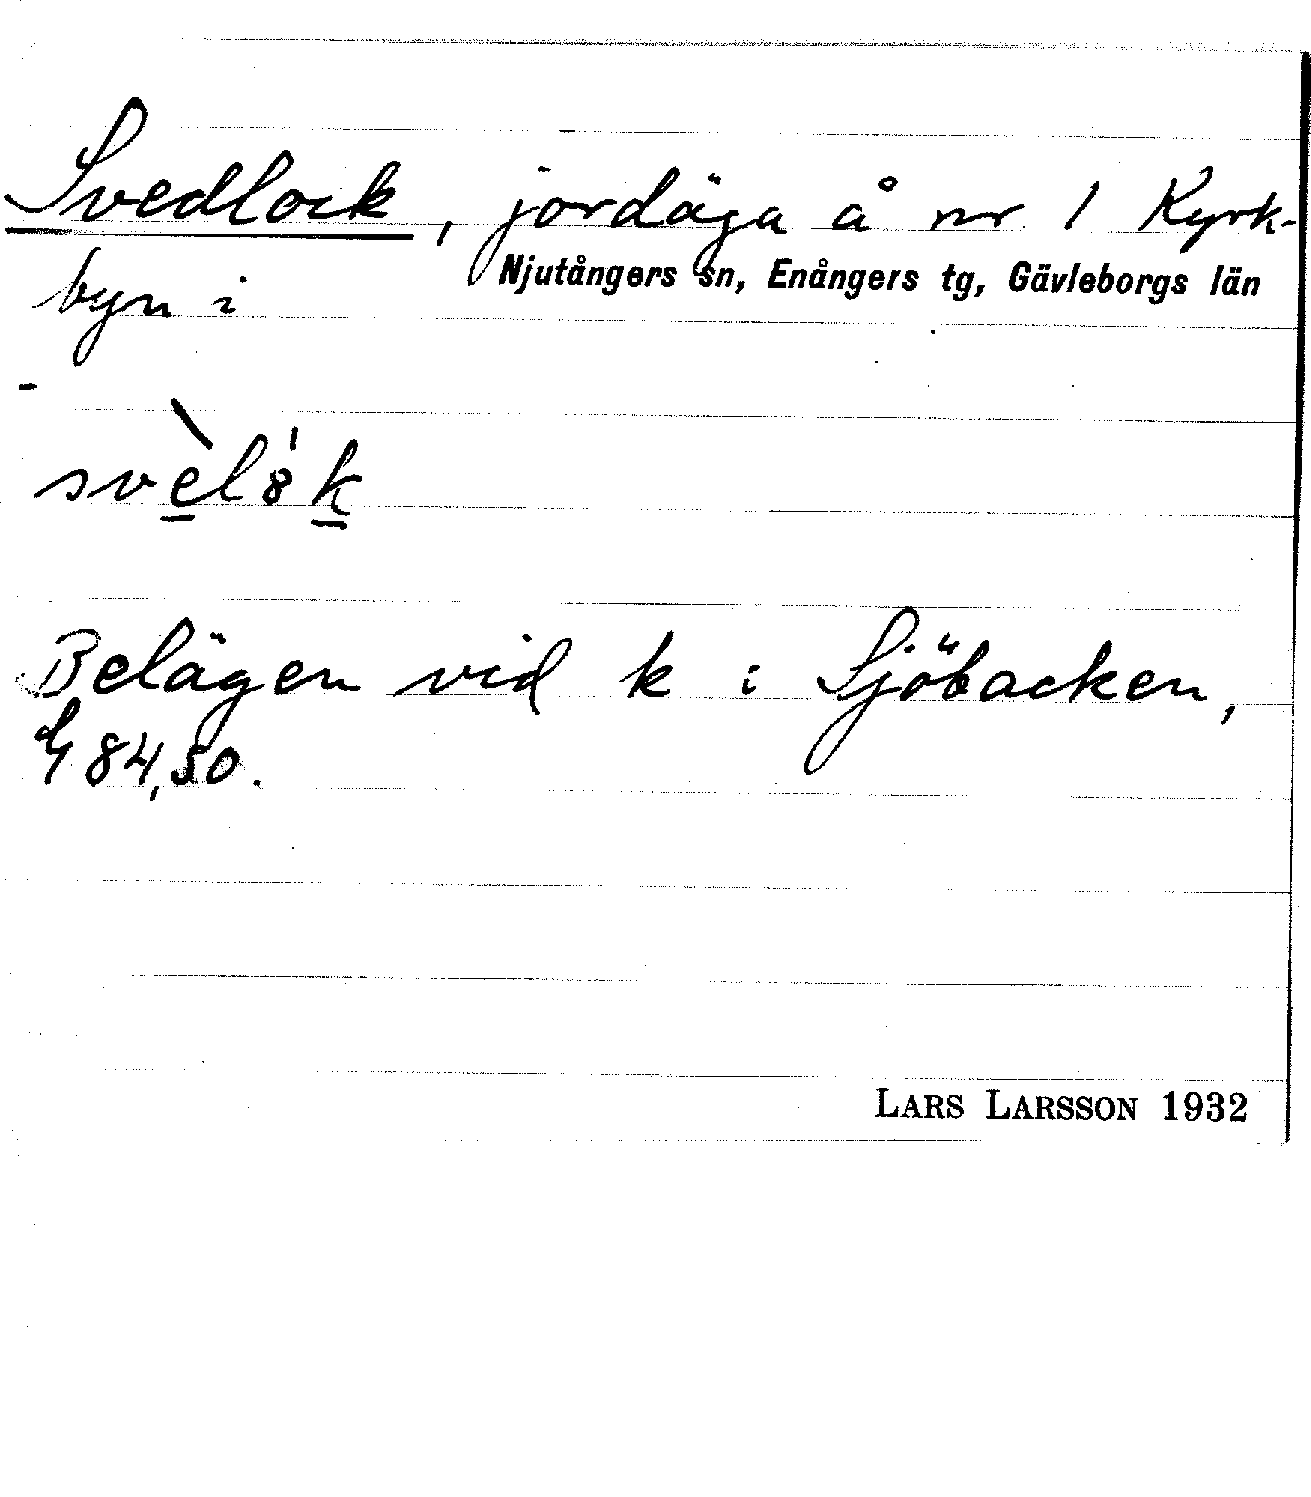 Svedlock, jordäga å nr 1 Kyrk-
Njutångers sn, Enångers tg, Gävleborgs län
byn i
Belägen vid k i Sjöbacken,
84,50.
LARS LARSSON 1932